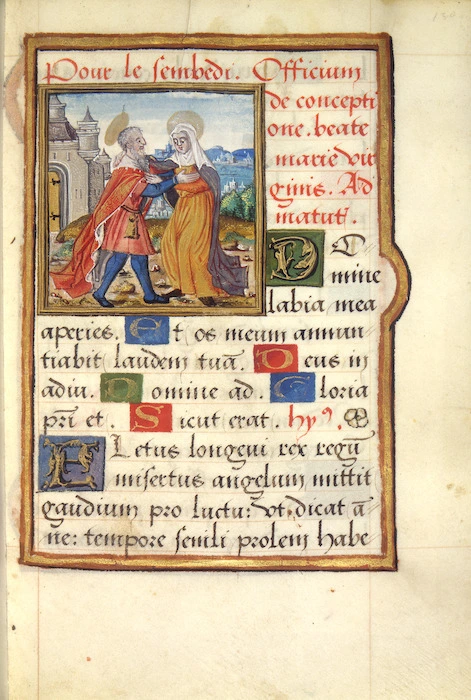 Pour le sembedi. Officium
de concepti
one. beate
marie vir
ginis. Ad
matut̄.
DO
mine
labia mea
aperies. Et os meum annun
tiabit laudem tuā. Deus in
adiu. Domine ad. Gloria
pr̄i et. Sicut erat. hy9.
FLetus longevi rex regū
misertus angelum mittit
gaudium pro luctu: vt dicat ā
ne: tempore senili prolem habe